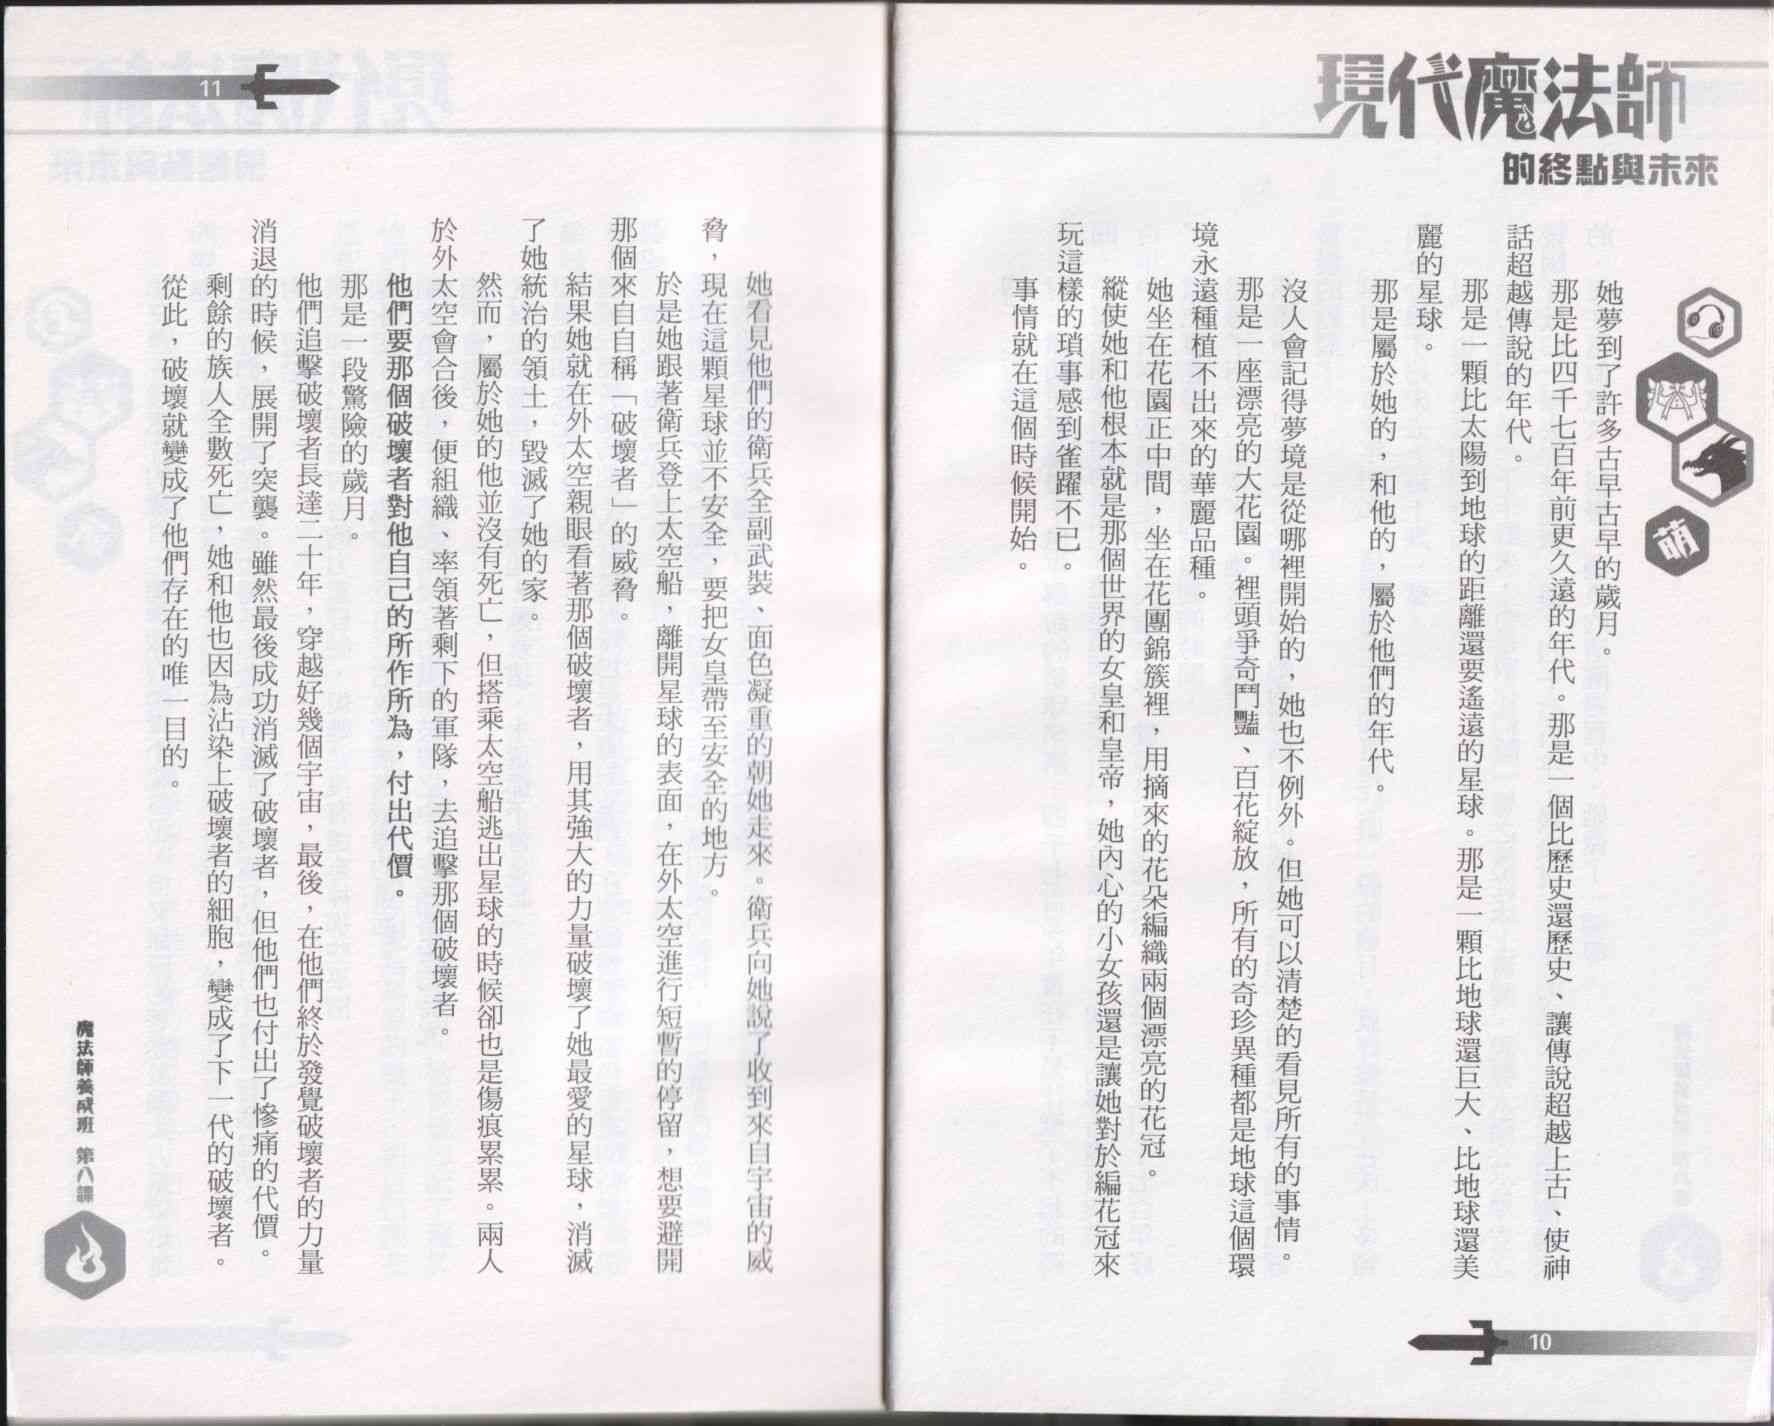 現代魔法師
的終點與未來
她夢到了許多古早古早的歲月。
那是比四千七百年前更久遠的年代。那是一個比歷史還歷史、讓傳說超越上古、使神
話超越傳說的年代。
那是一顆比太陽到地球的距離還要遙遠的星球。那是一顆比地球還巨大、比地球還美
麗的星球。
那是屬於她的，和他的，屬於他們的年代。
沒人會記得夢境是從哪裡開始的，她也不例外。但她可以清楚的看見所有的事情。
那是一座漂亮的大花園。裡頭爭奇鬥豔、百花綻放，所有的奇珍異種都是地球這個環
境永遠種植不出來的華麗品種。
她坐在花園正中間，坐在花團錦簇裡，用摘來的花朵編織兩個漂亮的花冠。
縱使她和他根本就是那個世界的女皇和皇帝，她內心的小女孩還是讓她對於編花冠來
玩這樣的瑣事感到雀躍不已。
事情就在這個時候開始。
萌
10
11
她看見他們的衛兵全副武裝、面色凝重的朝她走來。衛兵向她說了收到來自宇宙的威
脅，現在這顆星球並不安全，要把女皇帶至安全的地方。
於是她跟著衛兵登上太空船，離開星球的表面，在外太空進行短暫的停留，想要避開
那個來自自稱「破壞者」的威脅。
結果她就在外太空親眼看著那個破壞者，用其強大的力量破壞了她最愛的星球，消滅
了她統治的領土，毀滅了她的家。
然而，屬於她的他並沒有死亡，但搭乘太空船逃出星球的時候卻也是傷痕累累。兩人
於外太空會合後，便組織、率領著剩下的軍隊，去追擊那個破壞者。
他們要那個破壞者對他自己的所作所為，付出代價。
那是一段驚險的歲月。
他們追擊破壞者長達二十年，穿越好幾個宇宙，最後，在他們終於發覺破壞者的力量
消退的時候，展開了突襲。雖然最後成功消滅了破壞者，但他們也付出了慘痛的代價。
剩餘的族人全數死亡，她和他也因為沾染上破壞者的細胞，變成了下一代的破壞者。
從此，破壞就變成了他們存在的唯一目的。
魔法師養成班 第八課